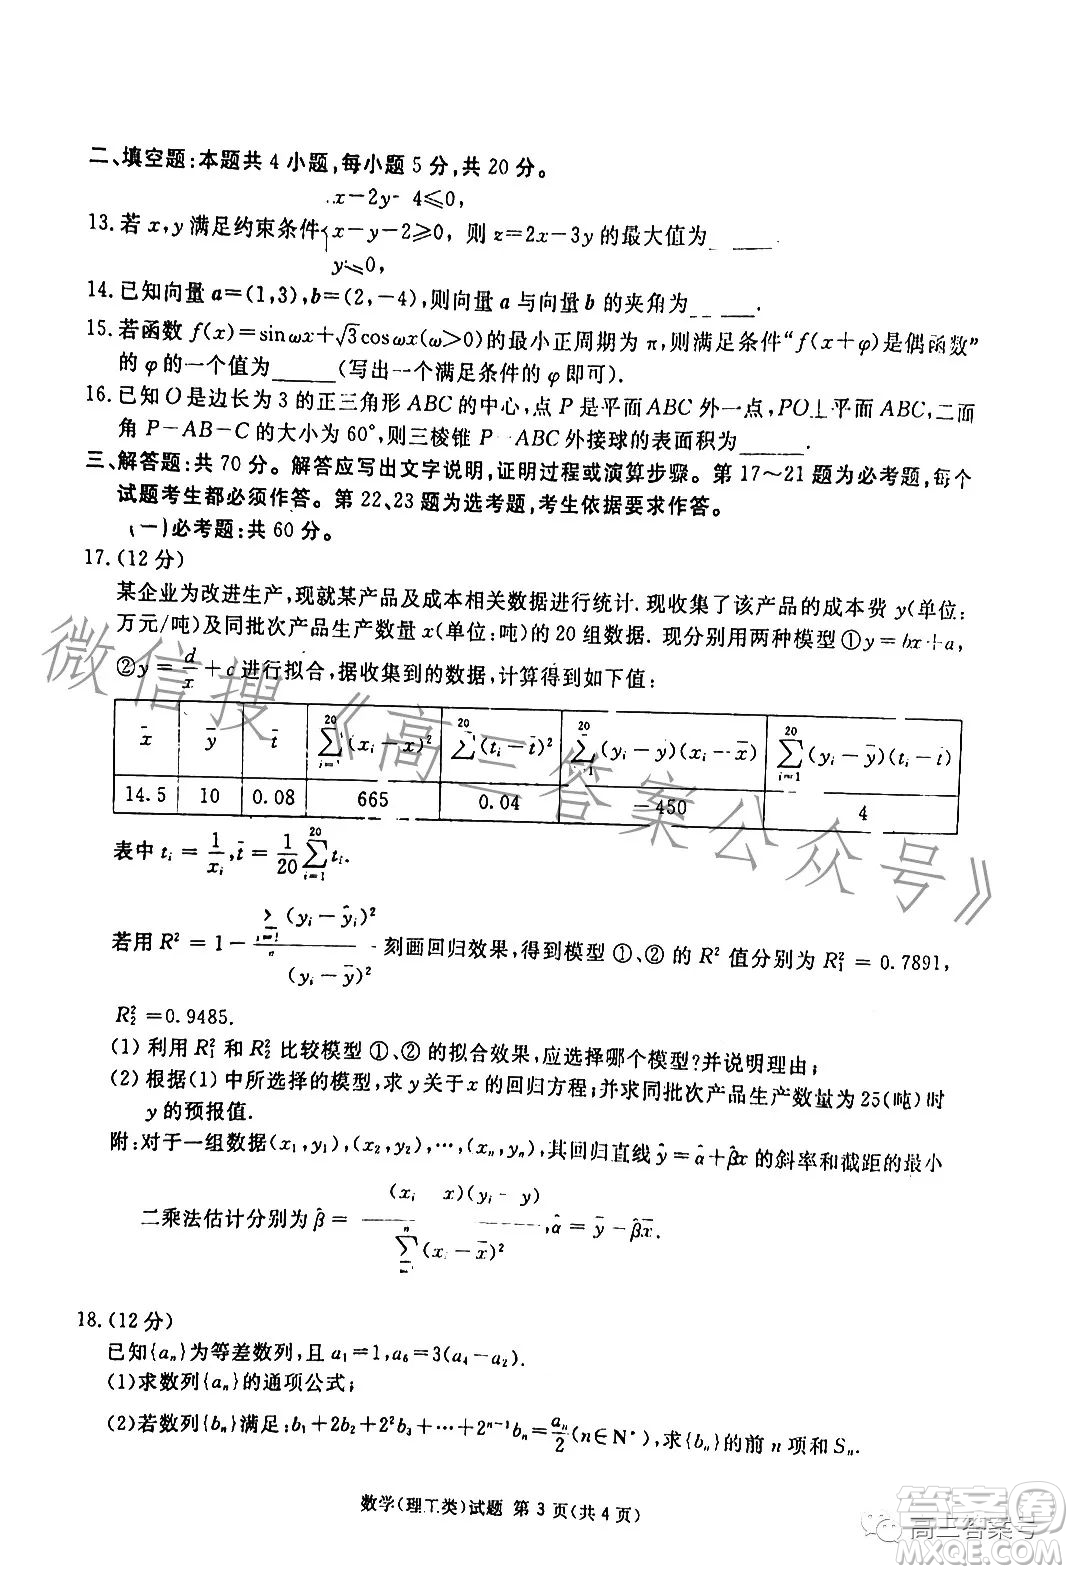 二、填空题:本题共 4 小题,每小题 5 分,共 20 分。
x-2y-4≤0,
13.若 x,y 满足约束条件{x-y-2≥0, 则 z=2x-3y 的最大值为____.
y≤0,
14.已知向量 a=(1,3),b=(2,-4),则向量 a 与向量 b 的夹角为____.
15.若函数 f(x)=sinωx+√3cosωx(ω>0)的最小正周期为 π,则满足条件“f(x+φ)是偶函数”
的 φ 的一个值为____(写出一个满足条件的 φ 即可).
16.已知 O 是边长为 3 的正三角形 ABC 的中心,点 P 是平面 ABC 外一点,PO⊥平面 ABC,二面
角 P-AB-C 的大小为 60°,则三棱锥 P-ABC外接球的表面积为____.
三、解答题:共 70 分。解答应写出文字说明,证明过程或演算步骤。第 17~21 题为必考题,每个
试题考生都必须作答。第 22、23 题为选考题,考生依据要求作答。
(一)必考题:共 60 分。
17.(12 分)
某企业为改进生产,现就某产品及成本相关数据进行统计.现收集了该产品的成本费 y(单位:
万元/吨)及同批次产品生产数量 x(单位:吨)的 20 组数据.现分别用两种模型①y=bx+a,
②y=d/x+c进行拟合,据收集到的数据,计算得到如下值:
x̄ ȳ t̄ ∑(i=1..20)(xᵢ-x̄)² ∑(i=1..20)(tᵢ-t̄)² ∑(i=1..20)(yᵢ-ȳ)(xᵢ-x̄) ∑(i=1..20)(yᵢ-ȳ)(tᵢ-t̄)
14.5 10 0.08 665 0.04 -450 4
表中 tᵢ=1/xᵢ,t̄=1/20 ∑(i=1..20)tᵢ.
若用 R²=1-∑(yᵢ-ŷᵢ)²/(yᵢ-ȳ)² 刻画回归效果,得到模型 ①、② 的 R² 值分别为 R₁²=0.7891,
R₂²=0.9485.
(1) 利用 R₁² 和 R₂² 比较模型 ①、② 的拟合效果,应选择哪个模型?并说明理由;
(2) 根据(1) 中所选择的模型,求 y 关于 x 的回归方程;并求同批次产品生产数量为 25(吨)时
y 的预报值.
附:对于一组数据(x₁,y₁),(x₂,y₂),…,(xₙ,yₙ),其回归直线 ŷ=α̂+β̂x 的斜率和截距的最小
二乘法估计分别为 β̂=(xᵢ x)(yᵢ-y)/∑(xᵢ-x̄)²,α̂=ȳ-β̂x̄.
18.(12 分)
已知{aₙ}为等差数列,且 a₁=1,a₆=3(a₄-a₂).
(1)求数列{aₙ}的通项公式;
(2)若数列{bₙ}满足:b₁+2b₂+2²b₃+…+2ⁿ⁻¹bₙ=aₙ/2(n∈N*),求{bₙ}的前 n 项和 Sₙ.
数学(理工类)试题 第 3 页(共 4 页)
微信搜《高三答案公众号》
高三答案号
答案圈
MXQE.COM